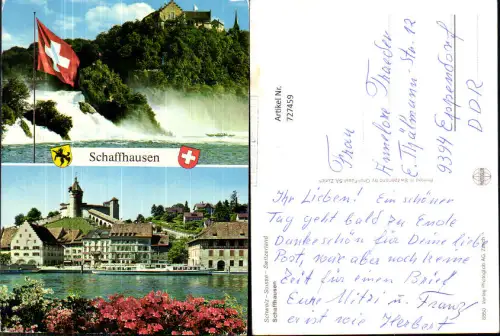 Schaffhausen
Artikel Nr.
727459
Frau
Annelore Thaeder
E. Thälmann-Str. 12
9394 Eppendorf
DDR
Ihr Lieben! Ein schöner
Tag geht bald zu Ende
Dankeschön für Deine liebe
Post, habe aber noch keine
Zeit für einen Brief
Eure Mitzi u. Franz
wie Herbert
Schweiz - Suisse - Switzerland
Schaffhausen